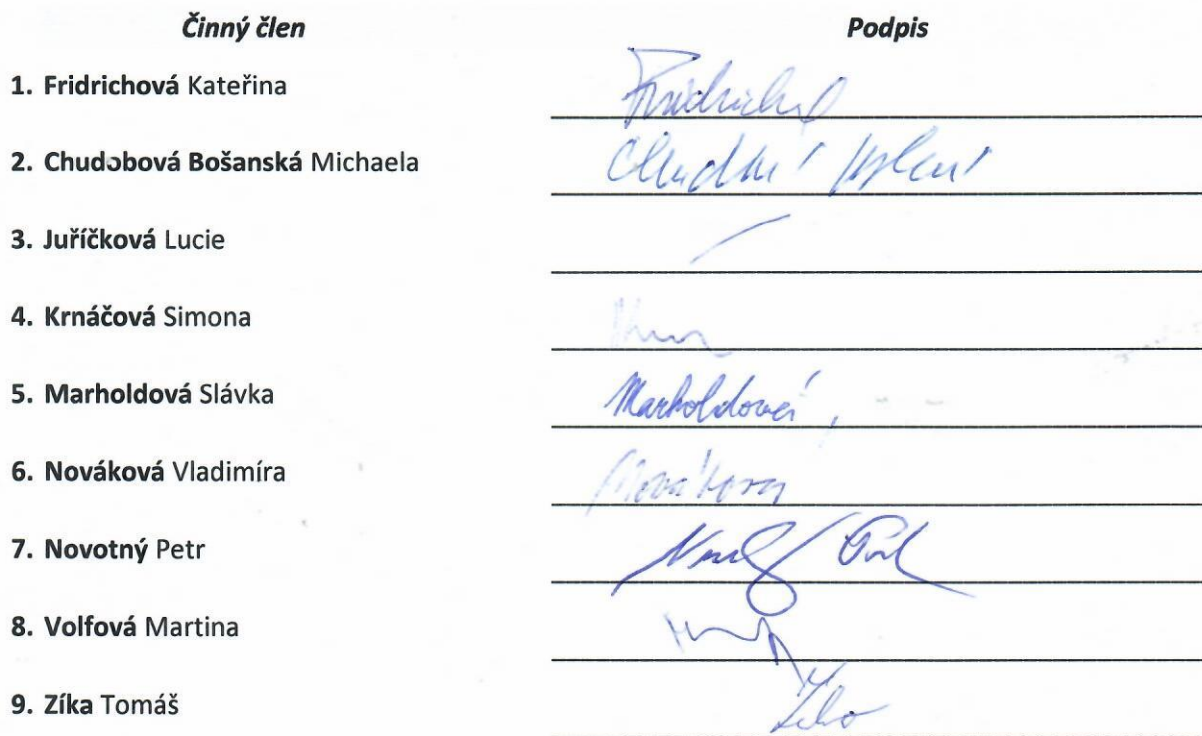 Činný člen Podpis
1. Fridrichová Kateřina Fridrichov
2. Chudobová Bošanská Michaela
3. Juříčková Lucie
4. Krnáčová Simona
5. Marholdová Slávka Marholdová
6. Nováková Vladimíra Nováková
7. Novotný Petr
8. Volfová Martina
9. Zíka Tomáš